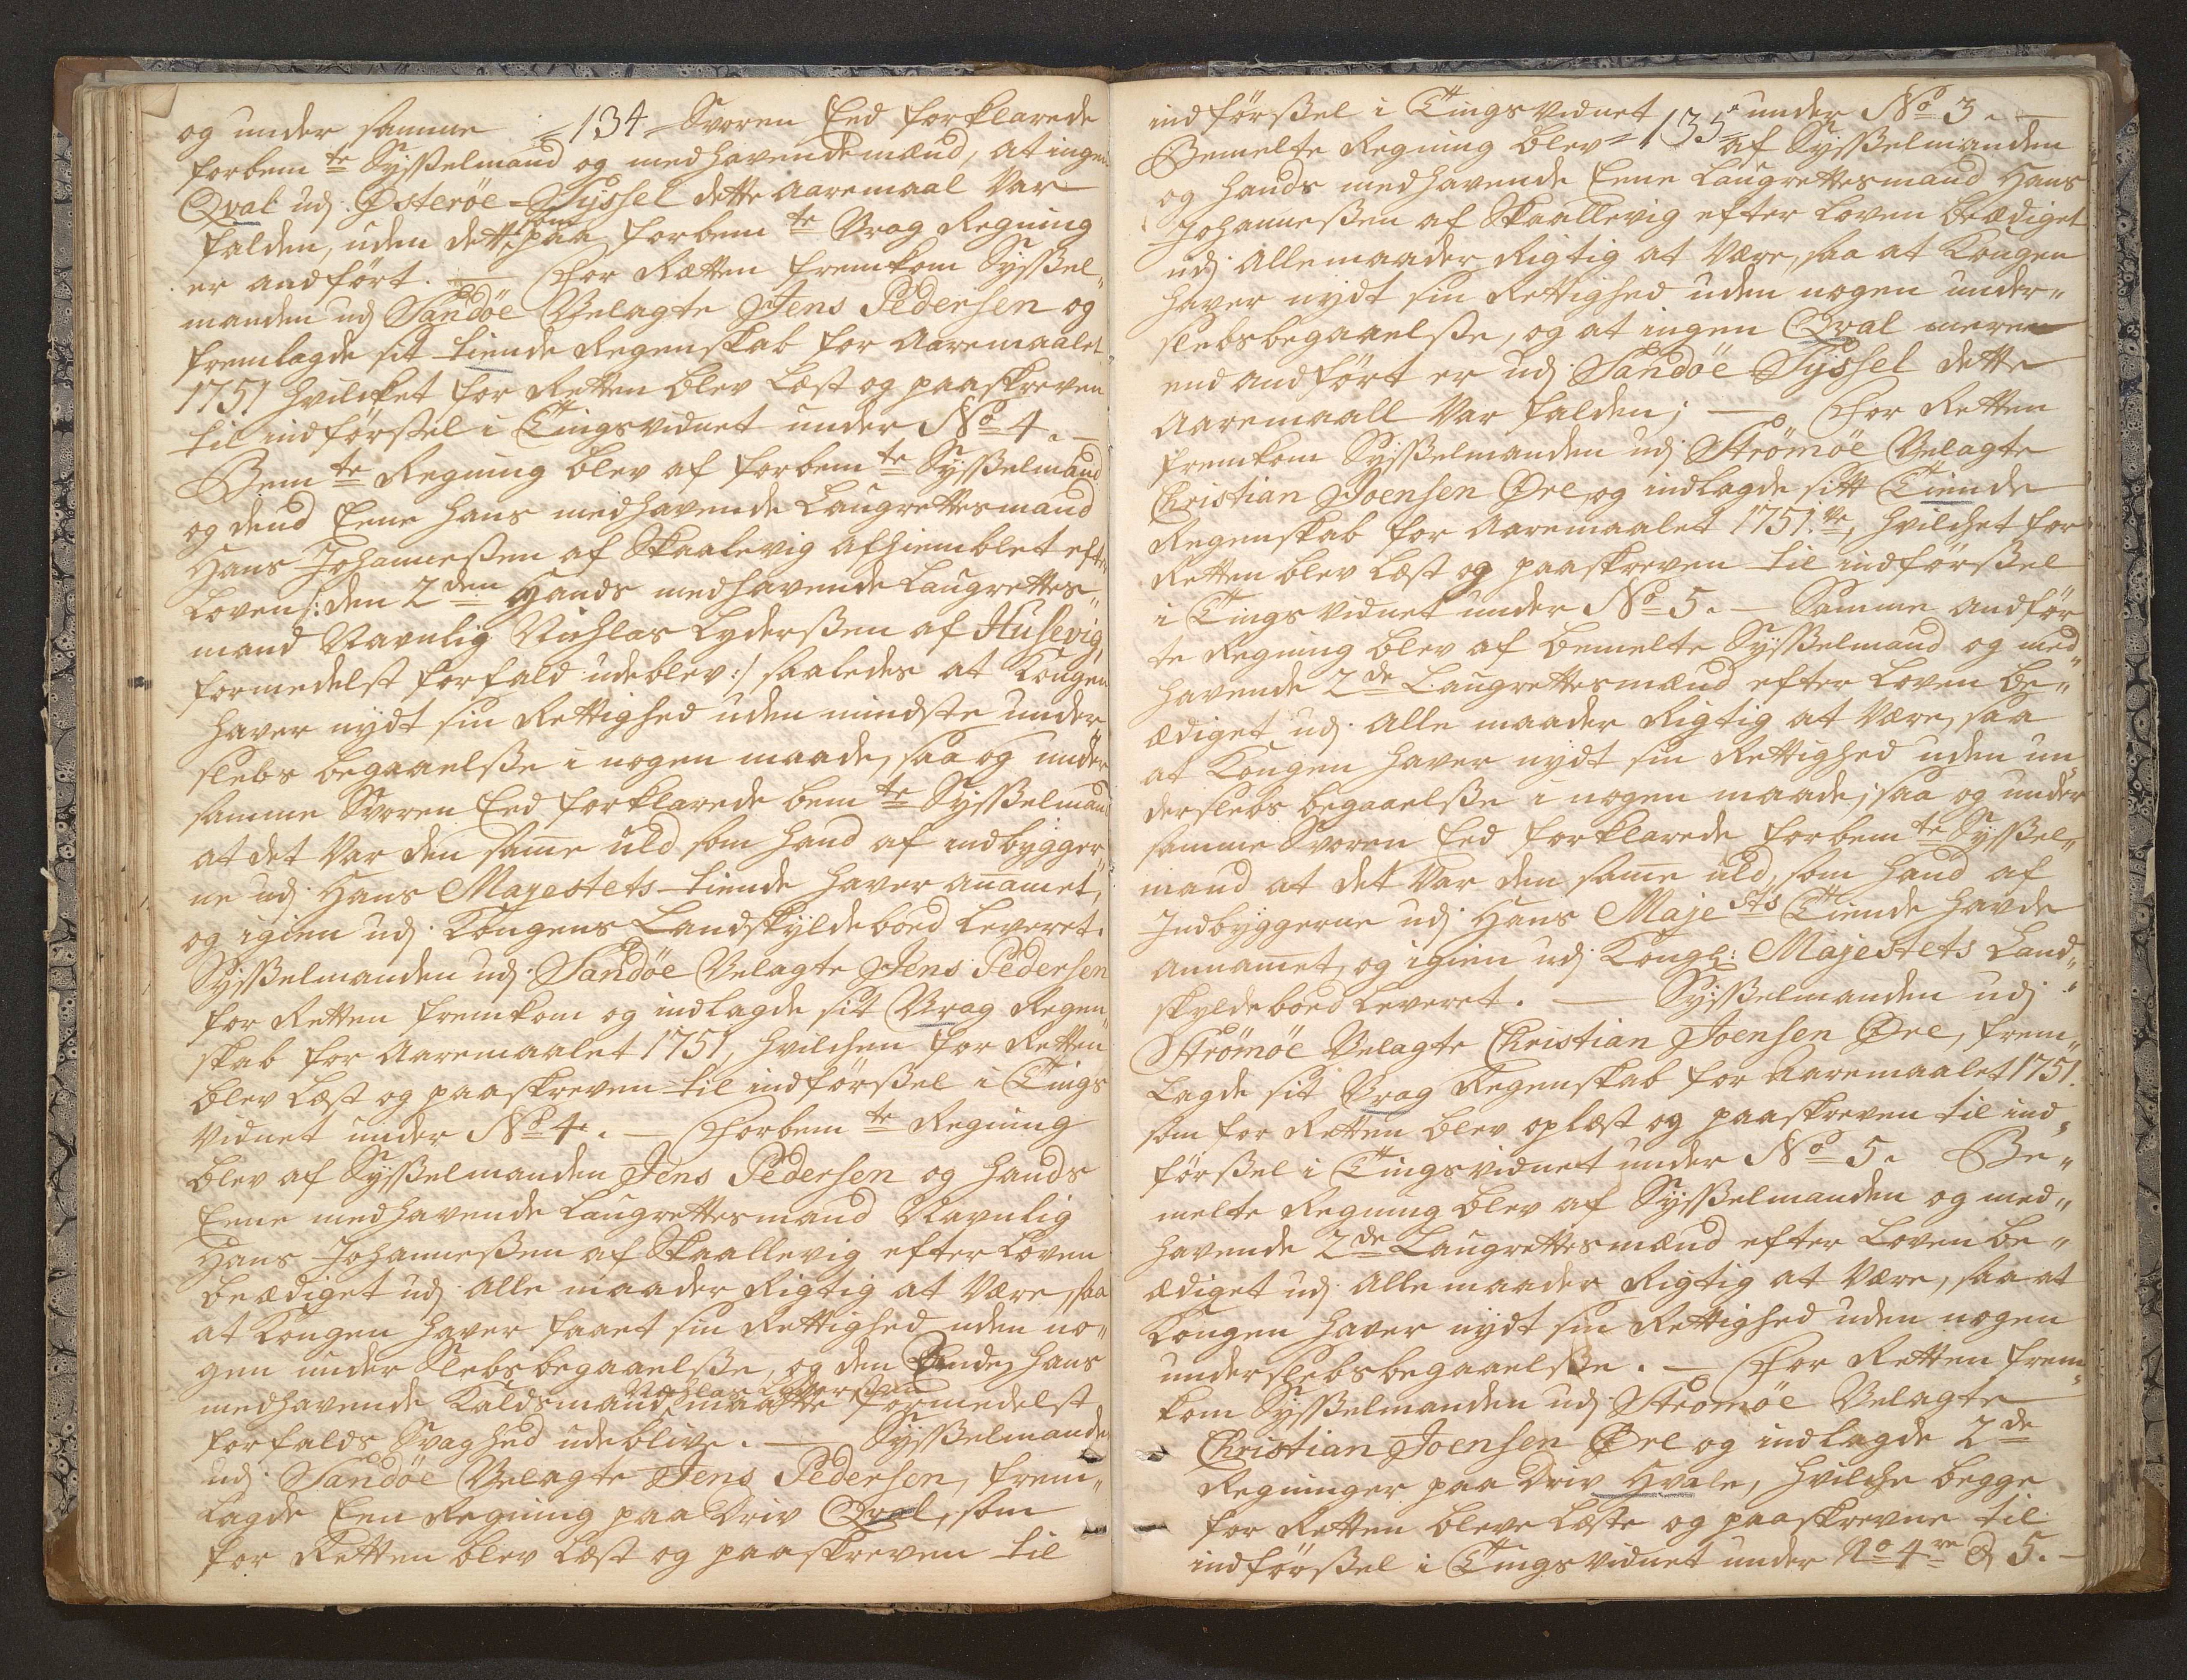 og under samme =134= Svoren Eed forklarede
forbem te Sysselmand og medhavende mænd, at ingen
Qval udj Østerøe=Syssel dette aaremaal Var
falden, uden dette som paa forbem te Vrag Regning
er andført. — For Rætten fremkom Syssel„
manden udj Sandöe Velagte Jens Pedersen og
fremlagde sit tiende Regenskab for Aaremaalet
1751 hvilcket for Retten blev Læst og paaskreven
til indförssel i Tingsvidnet under No 4. —
Bem te Regning blev af forbem te Sysselmand
og dend Eene hans medhavende Laugrettesmand
Hans Johannessen af Skaalevig afhiemblet efter
Loven /: den 2den Hands medhavende Laugrettes„
mand Navnlig Nichlas Lyderssen af Husevig,
formedelst forfald udeblev :/ saaledes at Kongen
haver nydt sin Rettighed uden mindste under„
slebs begaaelsse i nogen maade, saa og under
samme Svoren Eed forklarede bem te Sysselmand
at det Var den same uld som hand af indbygger„
ne udj Hans Mayestets tiende haver anamet,
og igien udj Kongens Landskyldeboed Leveret.
Sysselmanden udj Sandöe Velagte Jens Pedersen
for Retten fremkom og indlagde sit Vrag Regen„
skab for Aaremaalet 1751, hvilchen for Retten
blev Læst og paaskreven til indförssel i Tings
Vidnet under No 4. — Forbem te Regning
blev af Sysselmanden Jens Pedersen og hands
Eene medhavende Laugrettesmand Navnlig
Hans Johannessen af Skaallevig efter Loven
beædiget udj alle maader Rigtig at Være, saa
at Kongen haver faaet sin Rettighed uden no„
gen under Slebs begaaelsse, og den Anden hans
medhavende Kaldsmand Nichlas Lyderssen maatte formedelst
forfalds Svaghed udeblive. — Sysselmanden
udj Sandöe Velagte Jens Pedersen, frem„
lagde Een Regning paa Driv Qval, som
for Retten blev Læst og paaskreven til
indförssel i Tingsvidnet under No 3. —
Bemelte Regning blev =135= af Sysselmanden
og hands medhavende Eene Laugrettesmand Hans
Johannessen af Skaallevig efter Loven beædiget
udj alle maader Rigtig at Være, saa at Kongen
haver nydt sin Rettighed uden nogen under„
slebsbegaaelsse, og at ingen Qval meere
end andført er udj Sandöe Syssel dette
Aaremaall Var falden; — For Retten
fremkom Sysselmanden udj Strömöe Velagte
Christian Joensen Øre, og indlagde sitt Tiende
Regenskab for Aaremaalet 1751. ve, hvilchet for
Retten blev Læst og paaskreven til indförssel
i Tings Vidnet under No 5. — Samme andför
te Regning blev af bemelte Sysselmand og med„
havende 2de Laugrettesmænd efter Loven be„
ædiget udj alle maader Rigtig at Være, saa
at Kongen haver nydt sin Rettighed uden un„
derslebs begaaelsse i nogen maade; saa og under
samme Svoren Eed forklarede forbem te Syssel„
mand at det Var den same uld, som hand af
Indbyggerne udj Hans Maje sts Tiende havde
annamet, og igien udj Kongl: Majestets Land„
skyldeboed Leveret. — Sysselmanden udj
Strömöe Velagte Christian Joensen Øre, frem„
Lagde sit Vrag Regenskab for Aaremaalet 1751.
som for Retten blev oplæst og paaskreven til ind„
förssel i Tingsvidnet under No 5. Be„
melte Regning blev af Sysselmanden og med„
havende 2de Laugrettesmænd efter Loven be„
ædiget udj alle maader Rigtig at Være, saa at
Kongen haver nydt sin Rettighed uden nogen
underslebsbegaaelsse. — For Retten frem„
kom Sysselmanden udj Strömöe Velagte
Christian Joensen Øre og indlagde 2de
Regninger paa Driv Hvale, hvilche begge
for Retten bleve Læste og paaskrevne til
indförssel i Tings Vidnet under No 4re & 5. —